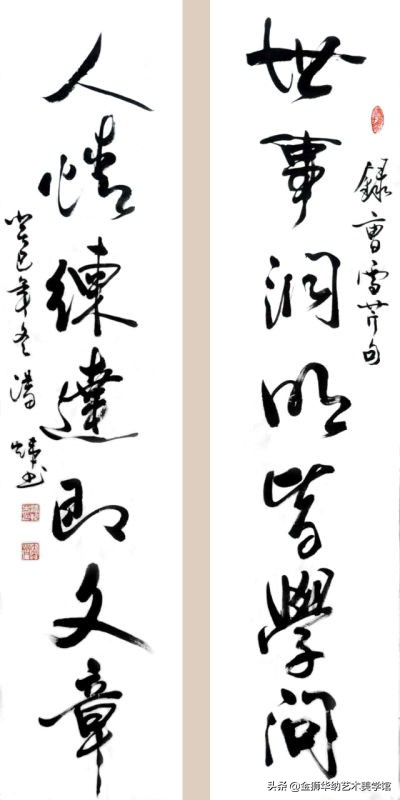 世事洞明皆學問
錄曹雪芹句
人情練達即文章
癸巳年冬潘
頭条@金狮华纳艺术美学馆